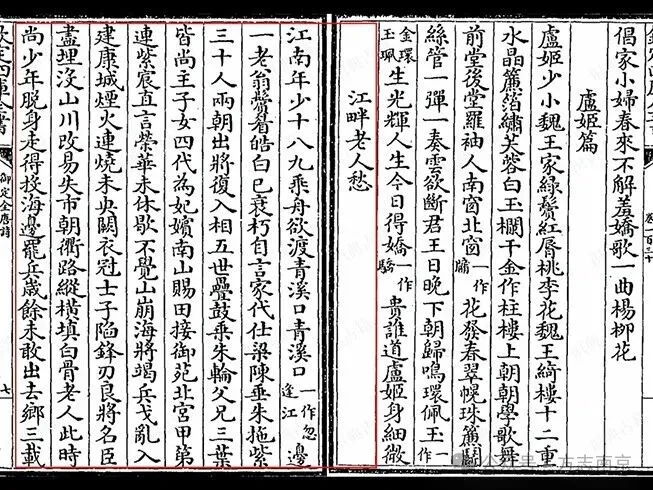 倡家小婦春來不解羞嬌歌一曲楊柳花
盧姬篇
盧姬少小魏王家綠鬢紅脣桃李花魏王綺樓十二重
水晶簾箔繡芙蓉白玉欄干金作柱樓上朝朝學歌舞
前堂後堂羅袖人南窗北窗一作牖花發春翠幌珠簾鬭
絲管一彈一奏雲欲斷君王日晚下朝歸鳴環佩玉一作
金環玉珮生光輝人生今日得嬌一作驕貴誰道盧姬身細微
江畔老人愁
江南年少十八九乘舟欲渡青溪口青溪口一作忽逢江邊
一老翁鬢眉皓白已衰朽自言家代仕梁陳垂朱拖紫
三十人兩朝出將復入相五世疊鼓乘朱輪父兄三葉
皆尚主子女四代為妃嬪南山賜田接御苑北宮甲第
連紫宸直言榮華未休歇不覺山崩海將竭兵戈亂入
建康城煙火連燒未央闕衣冠士子陷鋒刃良將名臣
盡埋沒山川改易失市朝衢路縱橫填白骨老人此時
尚少年脫身走得投海邊罷兵歲餘未敢出去鄉三載
御定全唐詩
七